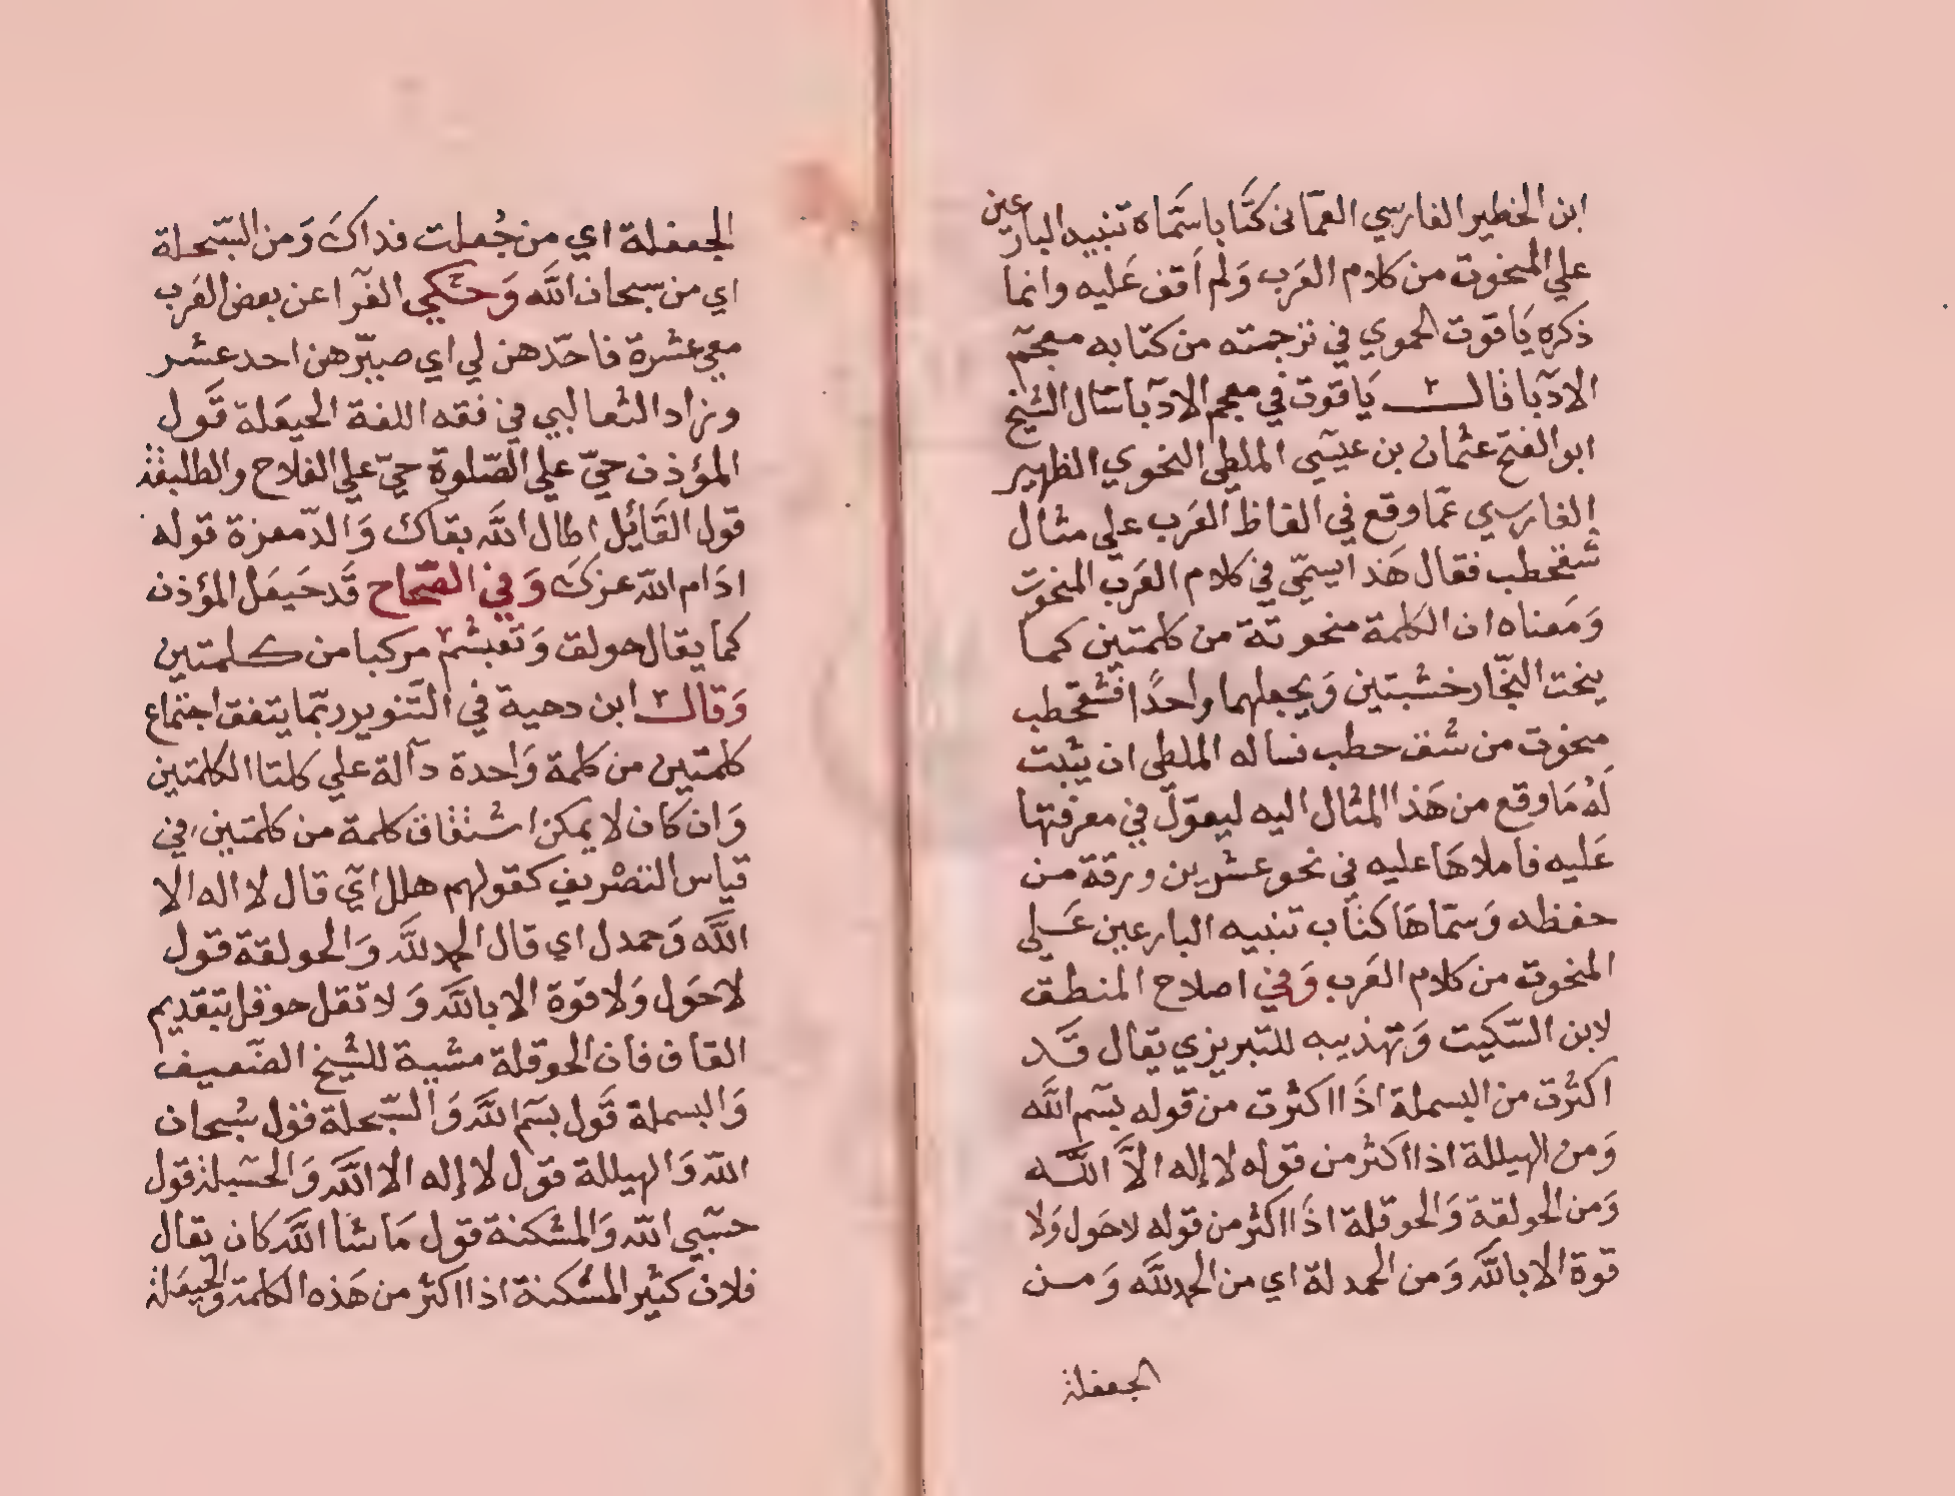 ابن الخطير الفارسي العمّانى كتَابا سَمّاه تنبيه البارعين
علي المنحوت من كلام العَرب وَلم اَقف عَليه وانما
ذكره يَاقوت الحموي في ترجمته من كتابه معجم
الادَبا قال يَاقوت في معجم الادَبا سَال الشيخ
ابو الفتح عثمان بن عيسَي الملطي النحوي الظهير
الفارسي عمّا وقع في الفاظ العَرب علي مثال
شقحطب فقال هَذا يسمّي في كلام العَرب المنحوَت
وَمَعناه ان الكلمة منحوتة من كلمتين كما
ينحت النجّار خشبتين وَيجعلهما واحدًا فشقحطب
منحوت من شق حطب فساله الملطي ان يثبت
لَهُ مَا وقع من هَذا المثال اليه ليعوّل في معرفتها
عَليه فاملاهَا عليه في نحو عشرين ورقة من
حفظه وَسمّاهَا كتَاب تنبيه البارعين عَلي
المنحوت من كلام العَرب وَفي اصلاح المنطق
لابن السّكيت وَتهذيبه للتبريزي يقال قَد
اكثرت من البسملة اذَا اكثرت من قوله بسَم اللَّه
وَمن الهيللة اذا اكثر من قوله لا إله الاَّ اللَّه
وَمن الحولقة وَالحوقلة اذَا اكثر من قوله لا حَول وَلا
قوة الا باللَّه وَمن الحمدلة اي من الحمد للَّه وَمن
الجعفلة
الجعفلة اي من جُعلت فداكَ وَمن السّبحلة
اي من سبحان اللَّه وَحكي الفرّا عن بعض العَرب
معي عشرة فاحّدهن لي اي صيّرهن احد عشر
وزاد الثعالبي في فقه اللغة الحيعَلة قَول
المؤذن حيّ علي الصّلوة حيّ علي الفلاح والطلبقة
قول القَائِل اطال اللَّه بقاك وَالدّمعزة قوله
ادَام اللَّه عزكَ وَفي الصّحاح قَد حَيعَل المؤذن
كما يقال حولق وَتعبشم مركبا من كلمتين
وَقال ابن دحية في التَّنوير ربّما يتفق اجتماع
كلمتين من كلمة وَاحدة دالة علي كلتا الكلمتين
وَان كان لا يمكن اشتقاق كلمة من كلمتين في
قياس التصْريف كقولهم هلل ايّ قال لا اله الا
اللَّه وَحمدل اي قال الحمد للَّه وَالحولقة قول
لا حَول وَلا قوة الا باللَّه وَلا تقل حوقل بتقديم
القاف فان الحوقلة مشية للشيخ الضّعيف
وَالبسملة قَول بسَم اللَّه وَالسّبحلة قول سُبحان
اللَّه وَالهيللة قول لا إله الا اللَّه وَالحسَبلة قول
حسَبي اللَّه وَالمشكنة قول مَا شَا اللَّه كان يقال
فلان كثير المشكنة اذا اكثر من هَذه الكلمة وَالحيعَلة